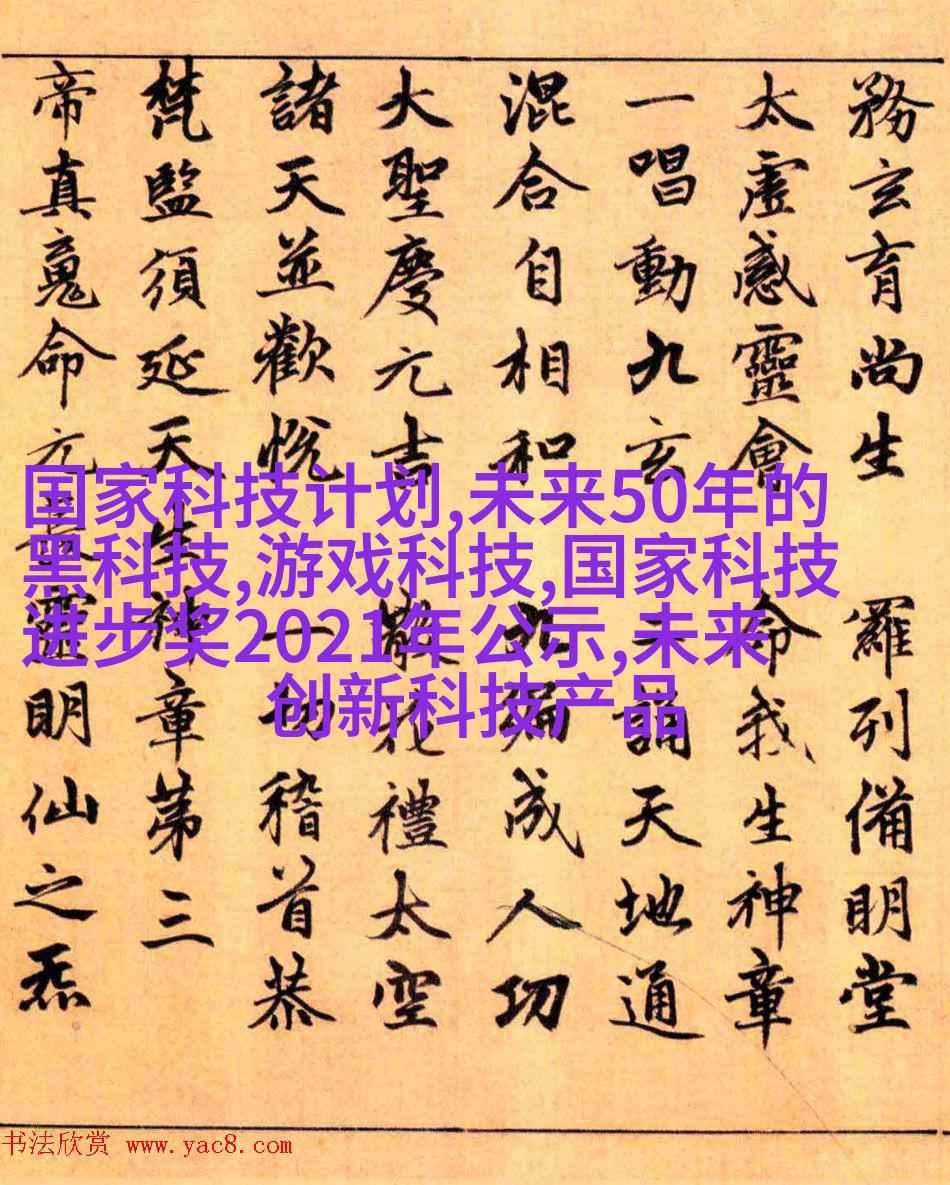 務玄育尚生 羅列備明堂
太虛感靈會 命我生神章
一唱動九玄 二誦天地通
混合自相和 九遍成人功
大聖慶元吉 散花禮太空
諸天並歡悅 一切稽首恭
梵監須延天生神章第三
帝真䰟命元長靈明仙之炁
国家科技计划,未来50年的
黑科技,游戏科技,国家科技
进步奖2021年公示,未来
创新科技产品
书法欣赏 www.yac8.com